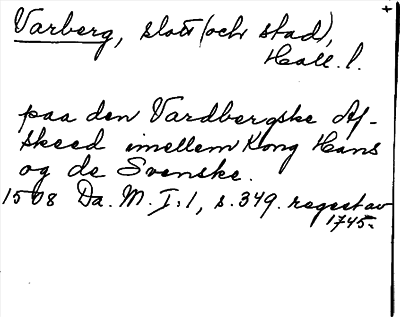 Varberg, slott (och stad),
Hall. l.
paa den Vardbergske Af-
skeed imellem Kong Hans
og de Svenske.
1508 Da. M. I:1, s. 349. regest av
1745.